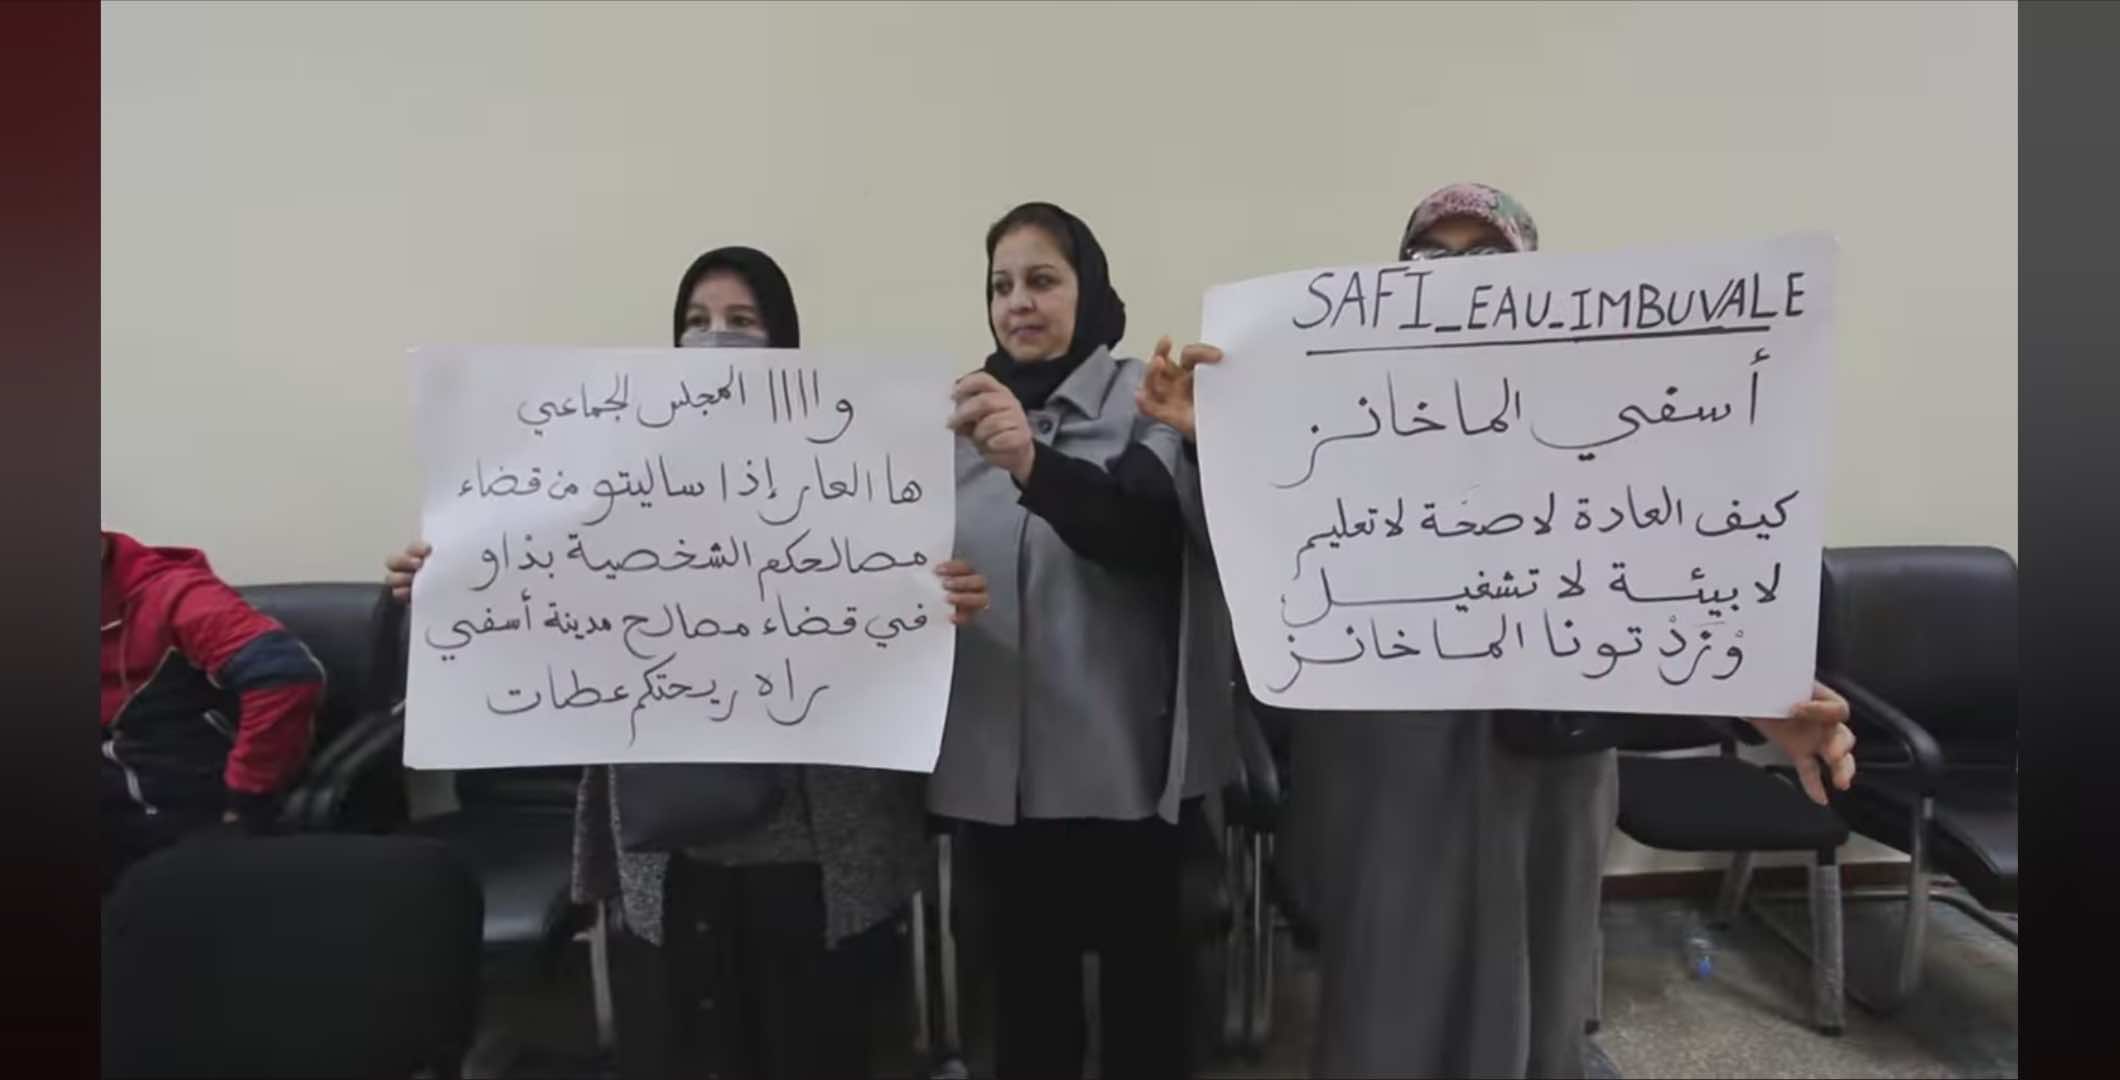 و||||ا المجلس الجماعي
ها العار إذا ساليتو من قضاء
مصالحكم الشخصية بذاو
في قضاء مصالح مدينة أسفي
راه ريحتكم عطات
SAFI_EAU_IMBUVALE
أسفي الما خانز
كيف العادة لا صحة لا تعليم
لا بيئة لا تشغيل
وْزَدْتونا الما خانز